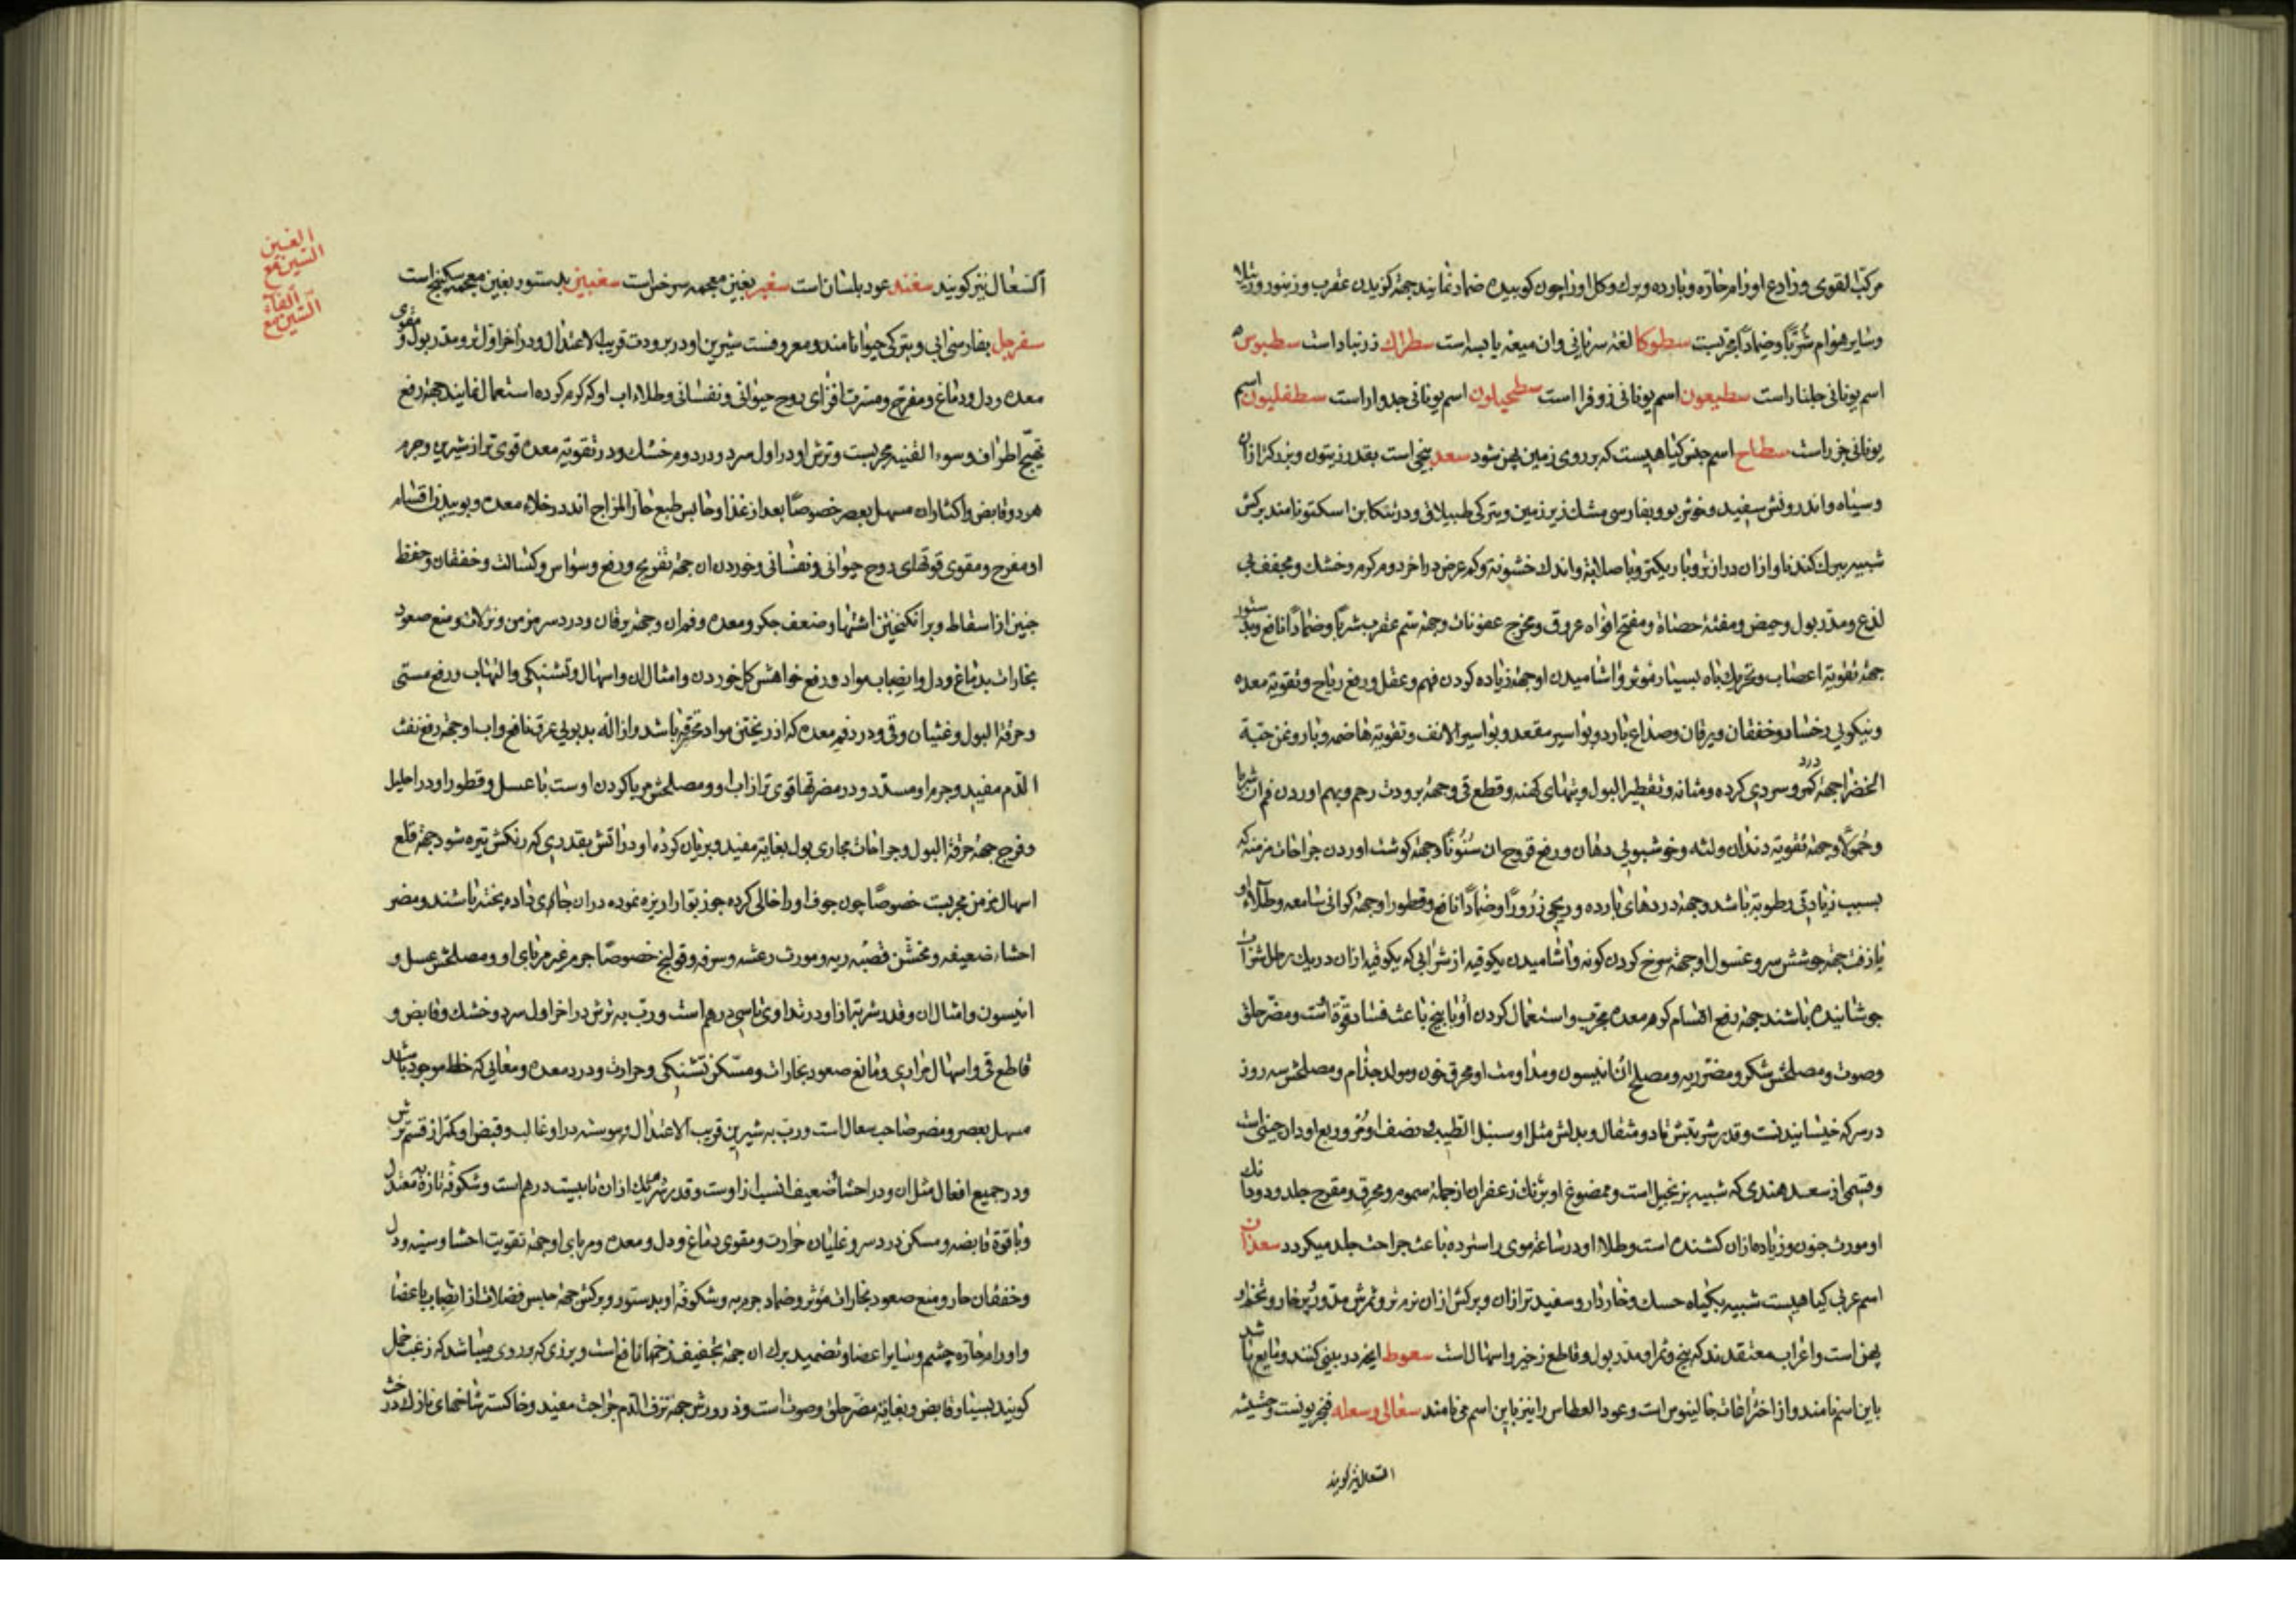 مرکب القوی و رادع اورام حاره و بارده و برک و کل او را چون کوبیده ضماد نمایند جهة کزیدن عقرب و زنبور و رتیلا
و سایر هوام شربًا و ضمادًا مجربست سطوکا لغة سریانی و ان میعه یابسه است سطراک زرنباد است سطیوس
اسم یونانی جلنار است سطیعون اسم یونانی زوفرا است سطحیلون اسم یونانی جدوار است سطفلیون اسم
یونانی جزر است سطاح اسم جنس کیاهیست که بر روی زمین پهن شود سعد بیخی است بقدر زیتون و بزرکتر ازان
و سیاه و اندرونش سفید و خوش بو و بفارسی مشک زیر زمین و بترکی طپلاق و در تنکابن اسکتو نامند برکش
شبیه ببرک کندنا و ازان درازتر و باریکتر و با صلابة و اندک خشونة و کم عرض در اخر دوم کرم و خشک و مجفف بی
لذع و مدر بول و حیض و مفتة حصاة و مفتح افواه عروق و مخرج عفونات و جهة سم عقرب شربًا و ضمادًا نافع و بدستور
جهة تقویة اعصاب و تحریک باه بسیار مؤثر و اشامیدن او جهة زیاده کردن فهم و عقل و رفع ریاح و تقویة معده
و نیکویی رخسار و خفقان و یرقان و صداع بارد و بواسیر مقعد و بواسیر الانف و تقویة هاضمه و با روغن حبة
الخضرا جهة درد کمر و سردی کرده و مثانه و تقطیر البول و تبهای کهنه و قطع قی و جهة برودت رحم و بهم اوردن فم ان شربا
و حمولًا و جهة تقویة دندان و لثه و خوشبویی دهان و رفع قروح ان سنونًا و جهة کوشت اوردن جراحات مزمنه که
بسبب زیادتی رطوبة باشد و جهة دردهای بارده و ریحی ذرورًا و ضمادًا نافع و قطور او جهة کرانی سامعه و طلاء او
با زفت جهة جوشش سر و غسول او جهة سرخ کردن کونه و اشامیدن یکوقیه از شرابی که یکوقیه ازان در یک رطل شراب
جوشانیده باشند جهة دفع اقسام کرم معده مجرب و استعمال کردن او با بیخ باعث فساد قوة است و مضر حلق
و صوت و مصلحش شکر و مضر ریه و مصلح ان انیسون و مداومت او محرق خون و مولد جذام و مصلحش سه روز
در سرکه خیسانیدنست و قدر شربتش تا دو مثقال و بدلش مثل او سنبل الطیب و نصف او مر و ربع او دارچینی است
و قسمی از سعد هندی که شبیه بزنجبیل است و ممضوغ او برنک زعفران از جمله سموم و محرق و مقرح جلد و دو دانک
او مورث جنون و زیاده ازان کشنده است و طلاء او در ساعة موی را سترده باعث جراحت جلد میکردد سعدان
اسم عربی کیاهیست شبیه بکیاه حسک و خاردار و سفیدتر ازان و برکش ازان نرم تر و ثمرش مدور پرخار و تخم او
پهن است و اعراب معتقدند که بیخ و ثمر او مدر بول و قاطع زحیر و اسهال است سعوط انچه در بینی کنند و مایع باشد
باین اسم نامند و از اختراعات جالینوس است و عود العطاس را نیز باین اسم می نامند سعالی و سعله فنجریونست و حشیشه
السعال نیز کویند
الغین
السین مع
الفاء
السین مع
السعال نیز کویند سغند عود بلسان است سغبر بغین معجمه سرخس است سغبین بدستور بغین معجمه سکبینج است
سفرجل بفارسی ابی و بترکی حیوا نامند و معروفست شیرین او در برودت قریب الاعتدال و در اخر اول تر و مدر بول و مقوی
معده و دل و دماغ و مفرح و مسرت افزای روح حیوانی و نفسانی و طلاء اب او که کرم کرده استعمال نمایند جهة رفع
تهیج اطراف و سوء القنیه مجربست و ترش او در اول سرد و در دوم خشک و در تقویة معده قوی تر از شیرین و جرم
هر دو قابض و اکثار ان مسهل بعصر خصوصًا بعد از غذا و حابس طبع حار المزاج اند در خلاء معده و بوییدن اقسام
او مفرح و مقوی قوتهای روح حیوانی و نفسانی و خوردن ان جهة تفریح و رفع وسواس و کسالت و خفقان و حفظ
جنین از اسقاط و برانکیختن اشتها و ضعف جکر و معده و فم ان و جهة یرقان و درد سر مزمن و نزلات و منع صعود
بخارات بدماغ و دل و انصباب مواد و رفع خواهش کل خوردن و امثال ان و اسهال و تشنکی و التهاب و رفع مستی
و حرقة البول و غثیان و قی و درد فم معده که از ریختن مواد محترقه باشد و ازاله بدبویی عرق نافع و اب او جهة رفع نفث
الدم مفید و جرم او مسدد و در مضرتها قوی تر از اب او و مصلحش مربا کردن اوست با عسل و قطور او در احلیل
و فرج جهة حرقة البول و جراحات مجاری بول بغایة مفید و بریان کرده او در اتش بقدری که رنکش تیره شود جهة قلع
اسهال مزمن مجربست خصوصًا چون جوف او را خالی کرده جوز بوا را ریزه نموده دران جای داده پخته باشند و مضر
احشاء ضعیفه و مخشن قصبه ریه و مورث رعشه و سرفه و قولنج خصوصًا جرم غیر مربای او و مصلحش عسل و
انیسون و امثال ان و قدر شربة ازو در تداوی تا سی درهم است و رب به ترش در اخر اول سرد و خشک و قابض و
قاطع قی و اسهال مراری و مانع صعود بخارات و مسکن تشنکی و حرارت و درد معده و معایی که خلط موجود باشد
مسهل بعصر و مضر صاحب سعال است و رب به شیرین قریب الاعتدال و یبوست در او غالب و قبض او کمتر از قسم ترش
و در جمیع افعال مثل ان و در احشاء ضعیف انسب ازوست و قدر شربت هر یک ازان تا بیست درهم است و شکوفه تازه به معتدل
و با قوة قابضه و مسکن درد سر و غلیان حرارت و مقوی دماغ و دل و معده و مربای او جهة تقویت احشا و سینه و دل
و خفقان حار و منع صعود بخارات مؤثر و ضماد جرم به و شکوفه او بدستور و برکش جهة حبس فضلات از انصباب باعضا
و اورام حاره چشم و سایر اعضا و تضمید برک ان جهة تجفیف زخمها نافع است و پرزی که بر روی به میباشد که زغب خمل
کویند بسیار قابض و بغایة مضر حلق و صوت است و ذرورش جهة نزف الدم جراحت مفید و خاکستر شاخهای نازک درخت